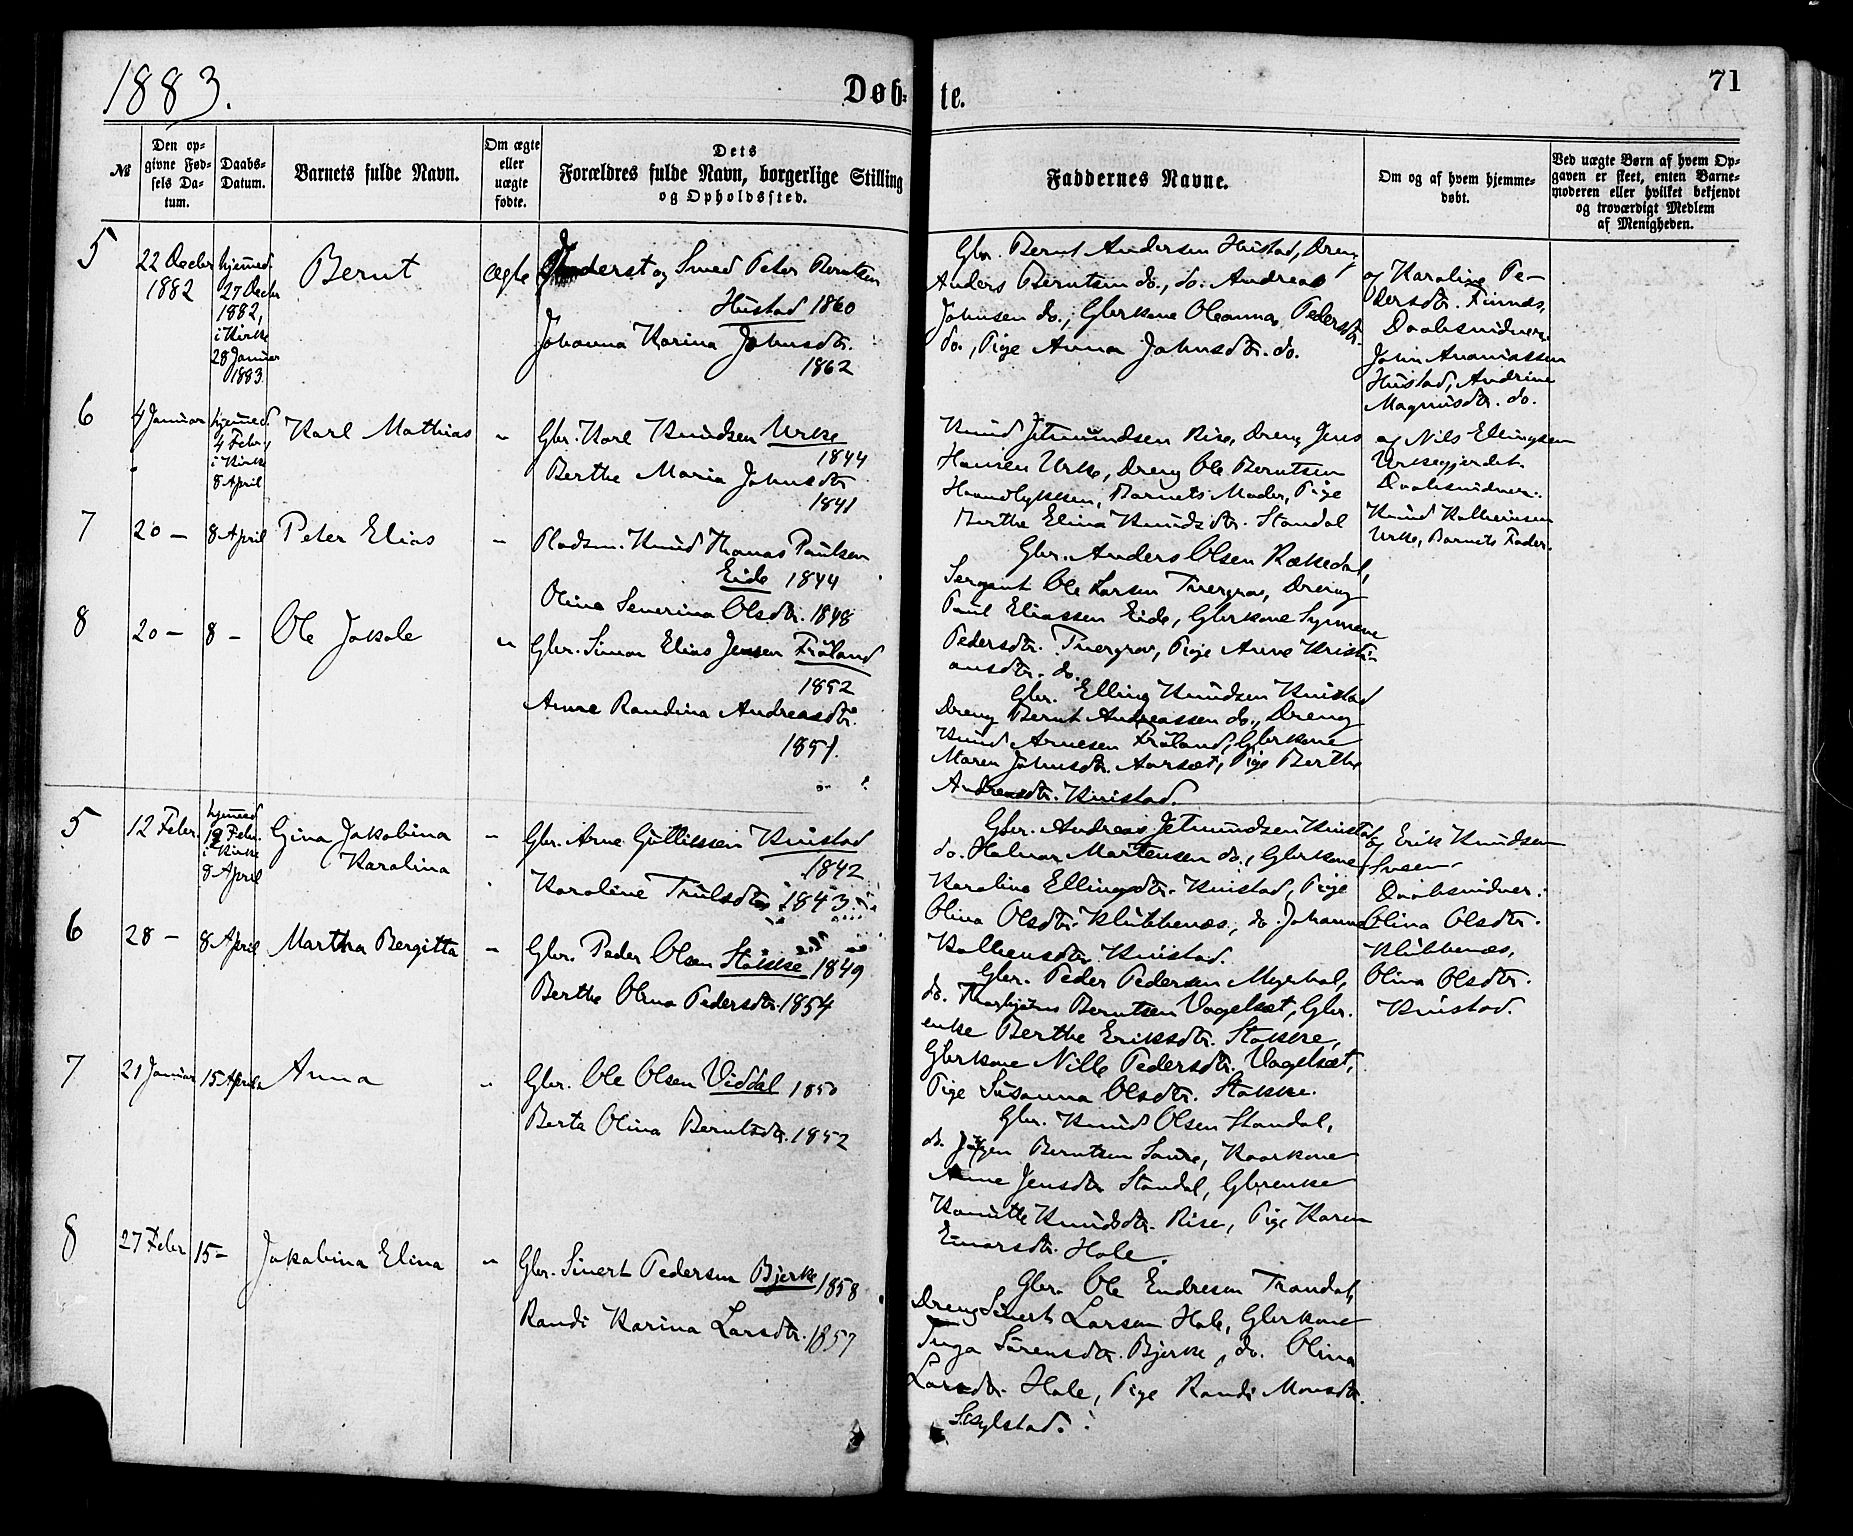 1883.
Døb-
te.
71
№
Den op-
givne Fød-
sels Da-
tum.
Daabs-
Datum.
Barnets fulde Navn.
Om ægte
eller
uægte
fødte.
Dets
Forældres fulde Navn, borgerlige Stilling
og Opholdssted.
Faddernes Navne.
Om og af hvem hjemme-
døbt.
Ved uægte Børn af hvem Op-
gaven er skeet, enten Barne-
moderen eller hvilket bekjendt
og troværdigt Medlem
af Menigheden.
5
22 Decbr
1882
hjemmed.
27 Decbr
1882,
i Kirke
28 Januar
1883.
Bernt
ægte
Inderst og Smed Peter Berntsen
Hustad 1860
Johanna Karina Johnsdtr.
1862
Gbr. Bernt Andersen Hustad, Dreng
Anders Berntsen do., do. Andreas
Johnsen do., Gbrkone Oleanna Pedersdtr.
do., Pige Anna Johnsdtr. do.
og Karoline Pe-
dersdtr. Finnes,
Daabsvidner:
John Ananiassen
Hustad, Andrine
Magnusdtr. do.
6
4 Januar
hjemmed.
4 Febr.,
i Kirke
8 April
Karl Mathias
"
Gbr. Karl Knudsen Urke
1844
Berthe Maria Johnsdtr
1841
Knud Jetmundsen Rise, Dreng Jens
Hansen Urke, Dreng Ole Berntsen
Haandlykken, Barnets Moder, Pige
Berthe Elina Knudsdtr. Standal
og Nils Ellingsen
Urkegjerdet.
Daabsvidner:
Knud
Urke, Barnets Fader.
7
20 —
8 April
Peter Elias
"
Pladsm. Knud Thomas Paulsen
Eide 1844
Olina Severina Olsdtr. 1848
Gbr. Anders Olsen Rækkedal,
Sergeant Ole Larsen Tuergrov, Dreng
Paul Eliassen Eide, Gbrkone Synneve
Pedersdtr. Tuergrov, Pige Anne Kristi-
ansdtr. do.
8
20 —
8 —
Ole Jakob
"
Gbr. Simon Elias Jensen Frøland
1852
Anne Randina Andreasdtr.
1851.
Gbr. Elling Knudsen Kvistad
Dreng Bernt Andreassen do., Dreng
Knud Arnesen Frøland, Gbrkone
Maren Johnsdtr. Aarsæt, Pige Berthe
Andreasdtr. Kvistad.
5
12 Febr.
hjemmed
12 Febr.
i Kirke
8 April
Gina Jakobina
Karolina
"
Gbr. Arne Guttissen Kvistad
1842
Karoline Trulsdtr 1843
Gbr. Andreas Jetmundsen Kvistad
do. Halvar Martensen do., Gbrkone
Karoline Ellingsdtr. Kvistad, Pige
Olina Olsdtr. Klubbenæs, do Johanne
Kvistad.
og Erik Knudsen
Sveen
Daabsvidner:
Olina Olsdtr.
Klubbenæs,
Olina Olsdtr.
Kvistad.
6
28 —
8 April
Martha Bergitta
"
Gbr. Peder Olsen Støkke 1849
Berthe Olina Pedersdtr. 1854
Gbr. Peder Pedersen Myrhol,
do. Thorbjørn Berntsen Vagelsæt, Gbr.
enke Berthe Eriksdtr. Støkke,
Gbrkone Nille Pedersdtr. Vagelsæt,
Pige Susanna Olsdtr. Støkke.
7
21 Januar
15 April
Anna
"
Gbr. Ole Olsen Viddal 1850
Berta Olina Berntsdtr. 1852
Gbr. Knud Olsen Standal,
do. Jørgen Berntsen Saure, Kaarkone
Anne Jensdtr Standal, Gbrenke
Knudsdtr. Rise, Pige Karen
Einarsdtr. Hole.
8
27 Febr
15 —
Jakobina Elina
"
Gbr. Sivert Pedersen Bjerke 1858
Randi Karina Larsdtr. 1857
Gbr. Ole Endresen Trandal,
Dreng Sivert Larsen Hole, Gbrkone
Inga Sørensdtr. Bjerke, do. Olina
Larsdtr. Hole, Pige Randi Monsdtr.
Skylstad.